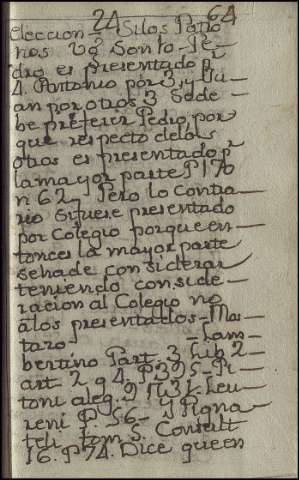 24 64
eleccion — Si los Patro
nos v.g. son 10 - Pe-
dro es presentado pr
4. Pantonio por 3, y Ju-
an por otros 3 Se de-
be preferir Pedro, por
que respecto de los
otros es presentado pr
la mayor parte P 170
n 62 - Pero lo contra-
rio si fuese presentado
por Colegio porque en-
tonces la mayor parte
se ha de considerar
teniendo conside-
racion al Colegio no
a los presentados - Mos-
tazo - Lam-
bertino Part. 3 Lib 2-
art 2 q 4. P. 395 - Pi-
toni aleg. 9 n 31 - Leu-
reni P. 56 - y Pigna-
teli tom 5. Consult
16. P 74. Dice que en